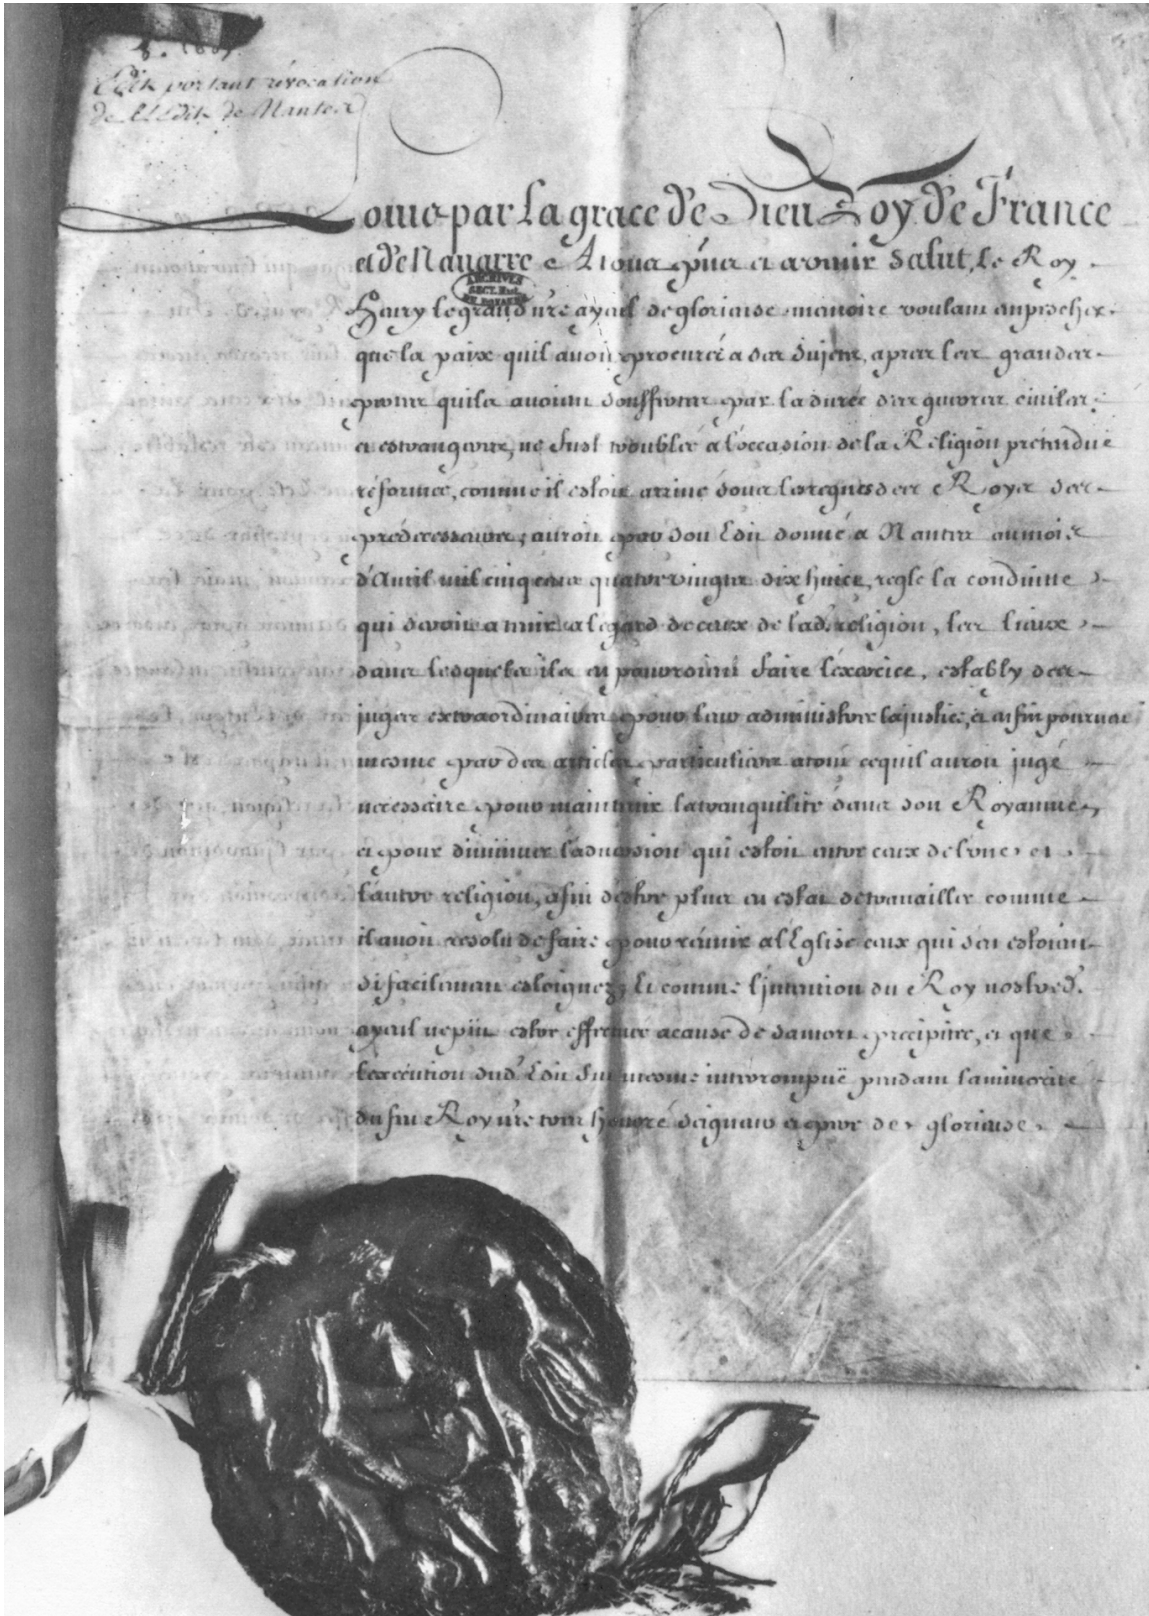 8. 1685.
Edit portant révocation
de l'Edit de Nantes
Louis par la grace de Dieu Roy de France
et de Nauarre A tous pñs et a venir Salut, Le Roy
ARCHIVES
SECT. HIST.
DU ROYAUME
Henry le grand nr̃e ayeul de glorieuse memoire voulant empescher
que la paix quil auoit procurée a ses sujets, apres les grandes
pertes quils auoient souffertes par la durée des guerres ciuiles
et estrangeres, ne fust troublée a l'occasion de la Religion prétendue
réformée, comme il estoit arriué sous les regnes des Roys ses
prédecesseurs, auroit par son Edit donné a Nantes au mois
d'Auril mil cinq cens quatre vingts dix huict, reglé la conduitte
qui deuoit a tenir a l'egard de ceux de lad. religion, les lieux
dans lesquels ils en pourroient faire l'éxercice, estably des
juges extraordinaires pour leur administrer la justice, et enfin pourueu
mesme par des articles particuliers a tout ce quil auroit jugé
necessaire pour maintenir la tranquilité dans son Royaume,
et pour diminuer l'aduersion qui estoit entre ceux de l'une et
l'autre religion, afin d'estre plus en estat de trauailler comme
il auoit resolu de faire pour réunir a l'Eglise ceux qui s'en estoient
si facilement esloignez, Et comme l'jntention du Roy nostred.
ayeul ne put estre effectuée a cause de sa mort précipitée, et que
l'execution dud. Edit fut mesme interrompuë pendant la minorité
du feu Roy nr̃e tres honoré seigneur et pere de glorieuse